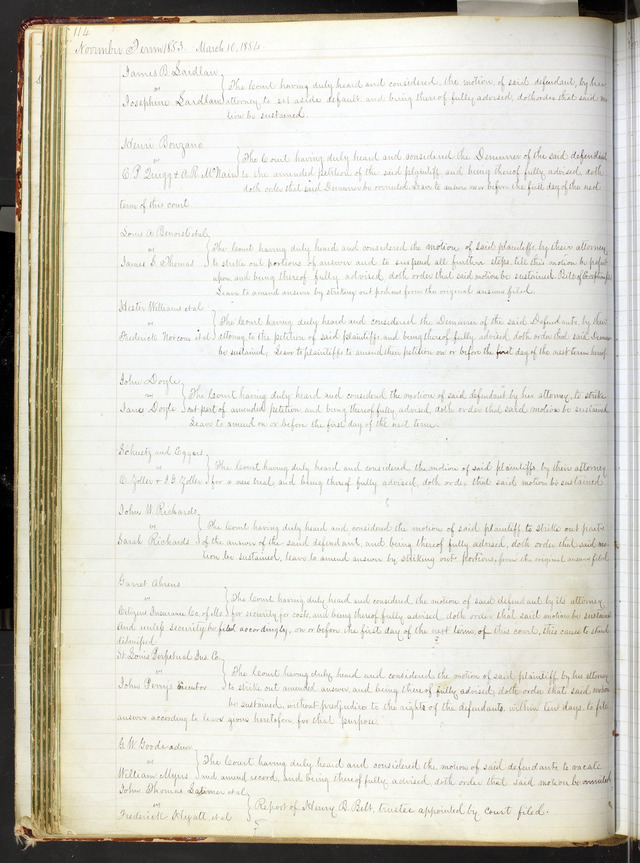 114
November Term 1853. March 10, 1854.
James B. Lardlaw
vs
Josephine Lardlaw
The Court having duly heard and considered the motion of said defendant, by her
attorney to set aside default and being thereof fully advised, doth order that said mo
tion be sustained.
Henri Bonzano
vs
C. P. Quigg & A. R. McNair
The Court having duly heard and considered the Demurrer of the said defendant
to the amended petition of the said plaintiff and being thereof fully advised, doth
doth order that said Demurrer be overruled. Leave to answer over before the first day of the next
term of this court
Louis A. Benoist et al
vs
James S. Thomas
The Court having duly heard and considered the motion of said plaintiffs by their attorney
to strike out portions of answer and to suspend all further steps till this motion be passed
upon and being thereof fully advised, doth order that said motion be sustained. Bill of Exceptions
Leave to amend answer by striking out portions from the original answer filed.
Hester Williams et al
vs
Frederick Norcom et al
The Court having duly heard and considered the Demurrer of the said Defendants, by their
attorney to the petition of said plaintiffs and being thereof fully advised, doth order that said Demurrer
be sustained, Leave to plaintiffs to amend their petition on or before the first day of the next term hereof.
John Doyle
vs
Jane Doyle
The Court having duly heard and considered the motion of said defendant by her attorney, to strike
out part of amended petition and being thereof fully advised, doth order that said motion be sustained
Leave to amend on or before the first day of the next term.
Schuetz and Eggers
vs
C. Zoller & J. G. Zoller
The Court having duly heard and considered the motion of said plaintiffs, by their attorney
for a new trial and being thereof fully advised, doth order that said motion be sustained
John W. Richards
vs
Sarah Richards
The Court having duly heard and considered the motion of said plaintiff to strike out parts
of the answer of the said defendant, and being thereof fully advised, doth order that said mo
tion be sustained, leave to amend answer by striking out portions, from the original answer filed
Garret Ahrens
vs
Citizens Insurance Co. of Mo
The Court having duly heard and considered, the motion of said defendant by its attorney
for security for costs, and being thereof fully advised, doth order that said motion be sustained
And unless security be filed accordingly, on or before the first day of the next term, of this court, this cause to stand
dismissed
St Louis Perpetual Ins. Co.
vs
John Perry's Executor
The Court having duly heard and considered the motion of said plaintiff by his attorney
to strike out amended answer, and being thereof fully advised doth order that said motion
be sustained, without predjudice to the rights of the defendants, within ten days, to file
answer according to leave given heretofore for that purpose.
G. W. Goode admr
vs
William Myers
The Court having duly heard and considered the motion of said defendants to vacate
and amend record, and being thereof fully advised doth order that said motion be overruled
John Thomas Latimer et al
vs
Frederick Hyatt et al
Report of Henry B. Belt, trustee appointed by court filed.